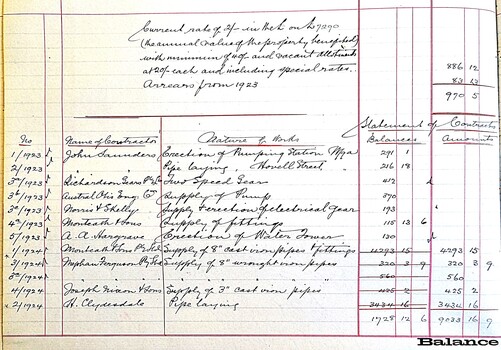 Current rate of 2/- in the £ on £7290
(the annual value of the property benefited)
with minimum of 40/- and vacant allotments
at 20/- each and including special rates. 886 12
Arrears from 1923 83 13
970 5
Statement of Contracts
No Name of Contractor Nature of Works Balances Amounts
1/1923 John Saunders Erection of Pumping Station 291 1
2/1923 " Pipe laying, Hovell Street 216 18
3a/1923 Richardson Gears Two Speed Gears 412
3b/1923 Austral Otis Eng. Co Supply of Pump 570
3c/1923 Norris & Skelly Supply & erection electrical gear 193
4a/1923 Monteath & Sons Supply of fittings 115 13 6
5/1923 A. G. Hargrave Erection of Water Tower 130
1/1924 Monteath & Sons Supply of 8" cast iron pipes & fittings 4293 15 4293 15
Mephan Ferguson Supply of 8" wrought iron pipes 320 3 9 320 3 9
560 560
4/1924 Joseph Nixon & Sons Supply of 3" cast iron pipes 425 2 425 2
2/1924 H. Clydesdale Pipe laying 3434 16 3434 16
1928 12 6 9033 16 9
Balance